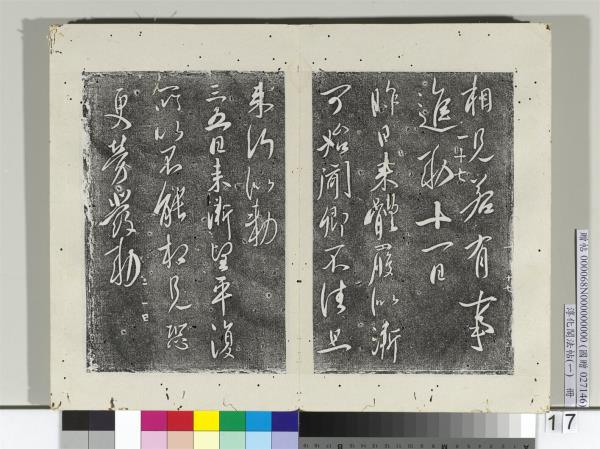 相見若有事
進勅十一日
昨日來體履似漸
可始聞卿不佳且
勅
三五日來漸望平復
所以不能相見恐
更勞發勅
贈帖 000068N000000000 (國贈 027146)
淳化閣法帖(一) 冊
17